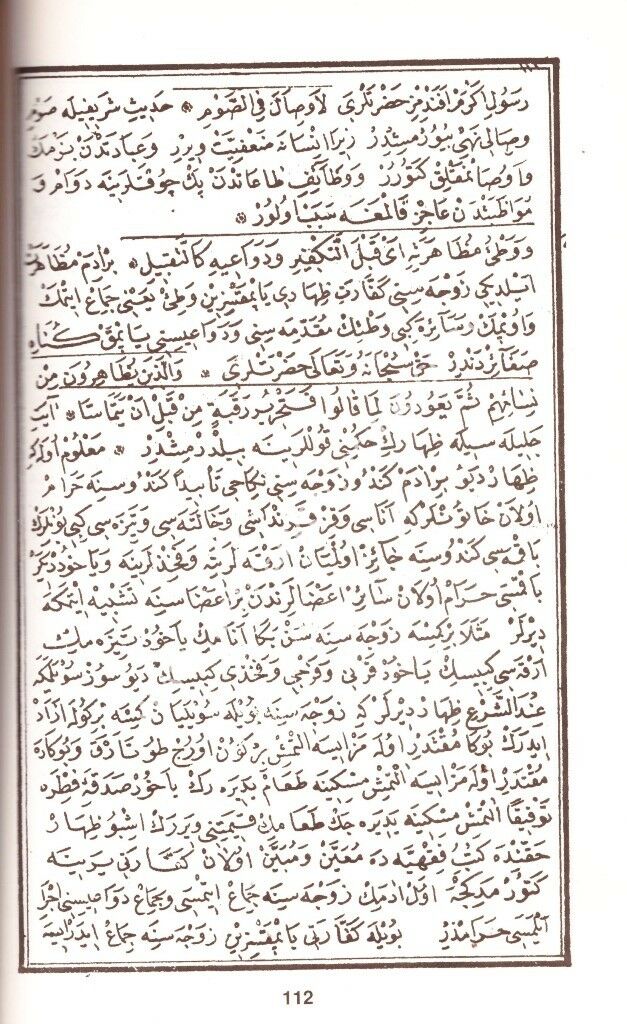 رسول اكرم افندمز حضرتلرى لاوصال فى الصوم * حديث شريفيله صوم
وصالى نهى بيورمشدر زيرا انسانه ضعفيت ويرر وعبادتدن بزمك
واوصانمقلق كتورر ووظائف طاعاتدن پك چوقلرينه دوام و
مواظبتدن عاجز قالمغه سبب اولور *
ووطئ مظاهرته اى قبل التكفير ودواعيه كالتقبيل * برادم مظاهرت
ايلديكى زوجه سنى كفارت ظهارى يا نمقسزين وطئ يعنى جماع ايتمك
واوپمك وسائره كبى وطئك مقدمه سنى ودواعيسنى يا نمق كناه
صغائردندر حق سبحانه وتعالى حضرتلرى * والذين يظاهرون من
نسائهم ثم يعودون لما قالوا فتحرير رقبة من قبل ان يتماسا * آيت
جليله سيله ظهارك حكمنى قوللرينه بيلدرمشدر * معلوم اوله كه
ظهار ديو برادم كندو زوجه سنى نكاحى تأبيدا كندوسنه حرام
اولان خاتونلركه اناسى وقز قرنداشى وخالته سى وتيزه سى كبى بونلرك
باقمسى كندوسنه جائز اوليان ارقه لرينه وفخذلرينه وياخود ديكر
باقمسى حرام اولان سائر اعضالرندن بر اعضاسنه تشبيه ايتمكه
ديرلر مثلا بركمسه زوجه سنه سن بكا انامك ياخود تيزه مك
ارقه سى كبيسك ياخود قرنى وفرجى وفخذى كبيسك ديو سوز سويلمكه
عند الشرع ظهار ديرلر كه زوجه سنه بويله سويليان كمسه بركوله ازاد
ايدرك بوكا مقتدر اوله مزايسه التمش بركون اوروج طوتارق وبوكاده
مقتدر اوله مزايسه التمش مسكينه طعام يديره رك ياخود صدقه فطره
توفيقا التمش مسكينه يديره جك طعامك قيمتنى ويررك اشبو ظهار
حقنده كتب فقهيه ده معين ومبين اولان كفارتى يرينه
كتورمدكجه اول ادمك زوجه سنه جماع ايتمسى وجماع دواعيسنى اجرا
ايلمسى حرامدر بويله كفارتى يا نمقسزين زوجه سنه جماع ايدرايسه
112